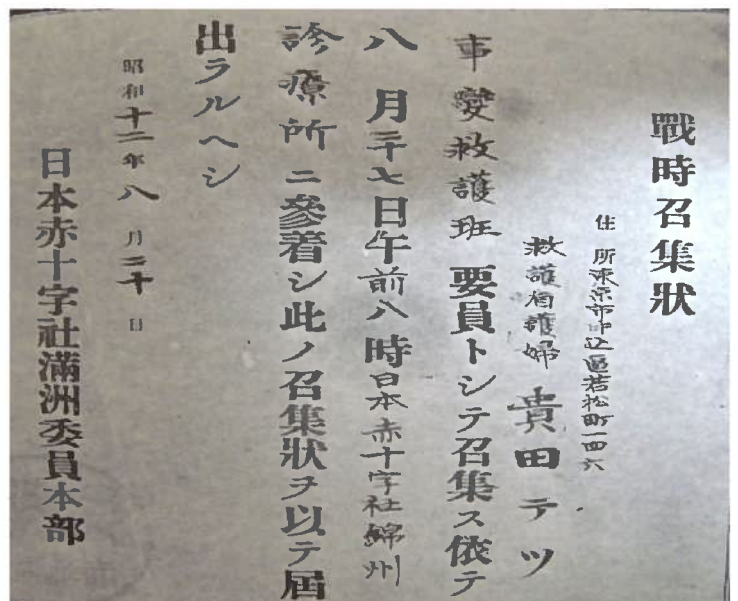 戰時召集狀
住所東京市牛込區若松町一四六
救護看護婦 貴田テツ
事變救護班要員トシテ召集ス依テ
八月二十七日午前八時日本赤十字社錦州
診療所ニ參着シ此ノ召集狀ヲ以テ屆
出ラルヘシ
昭和十二年八月二十日
日本赤十字社滿洲委員本部